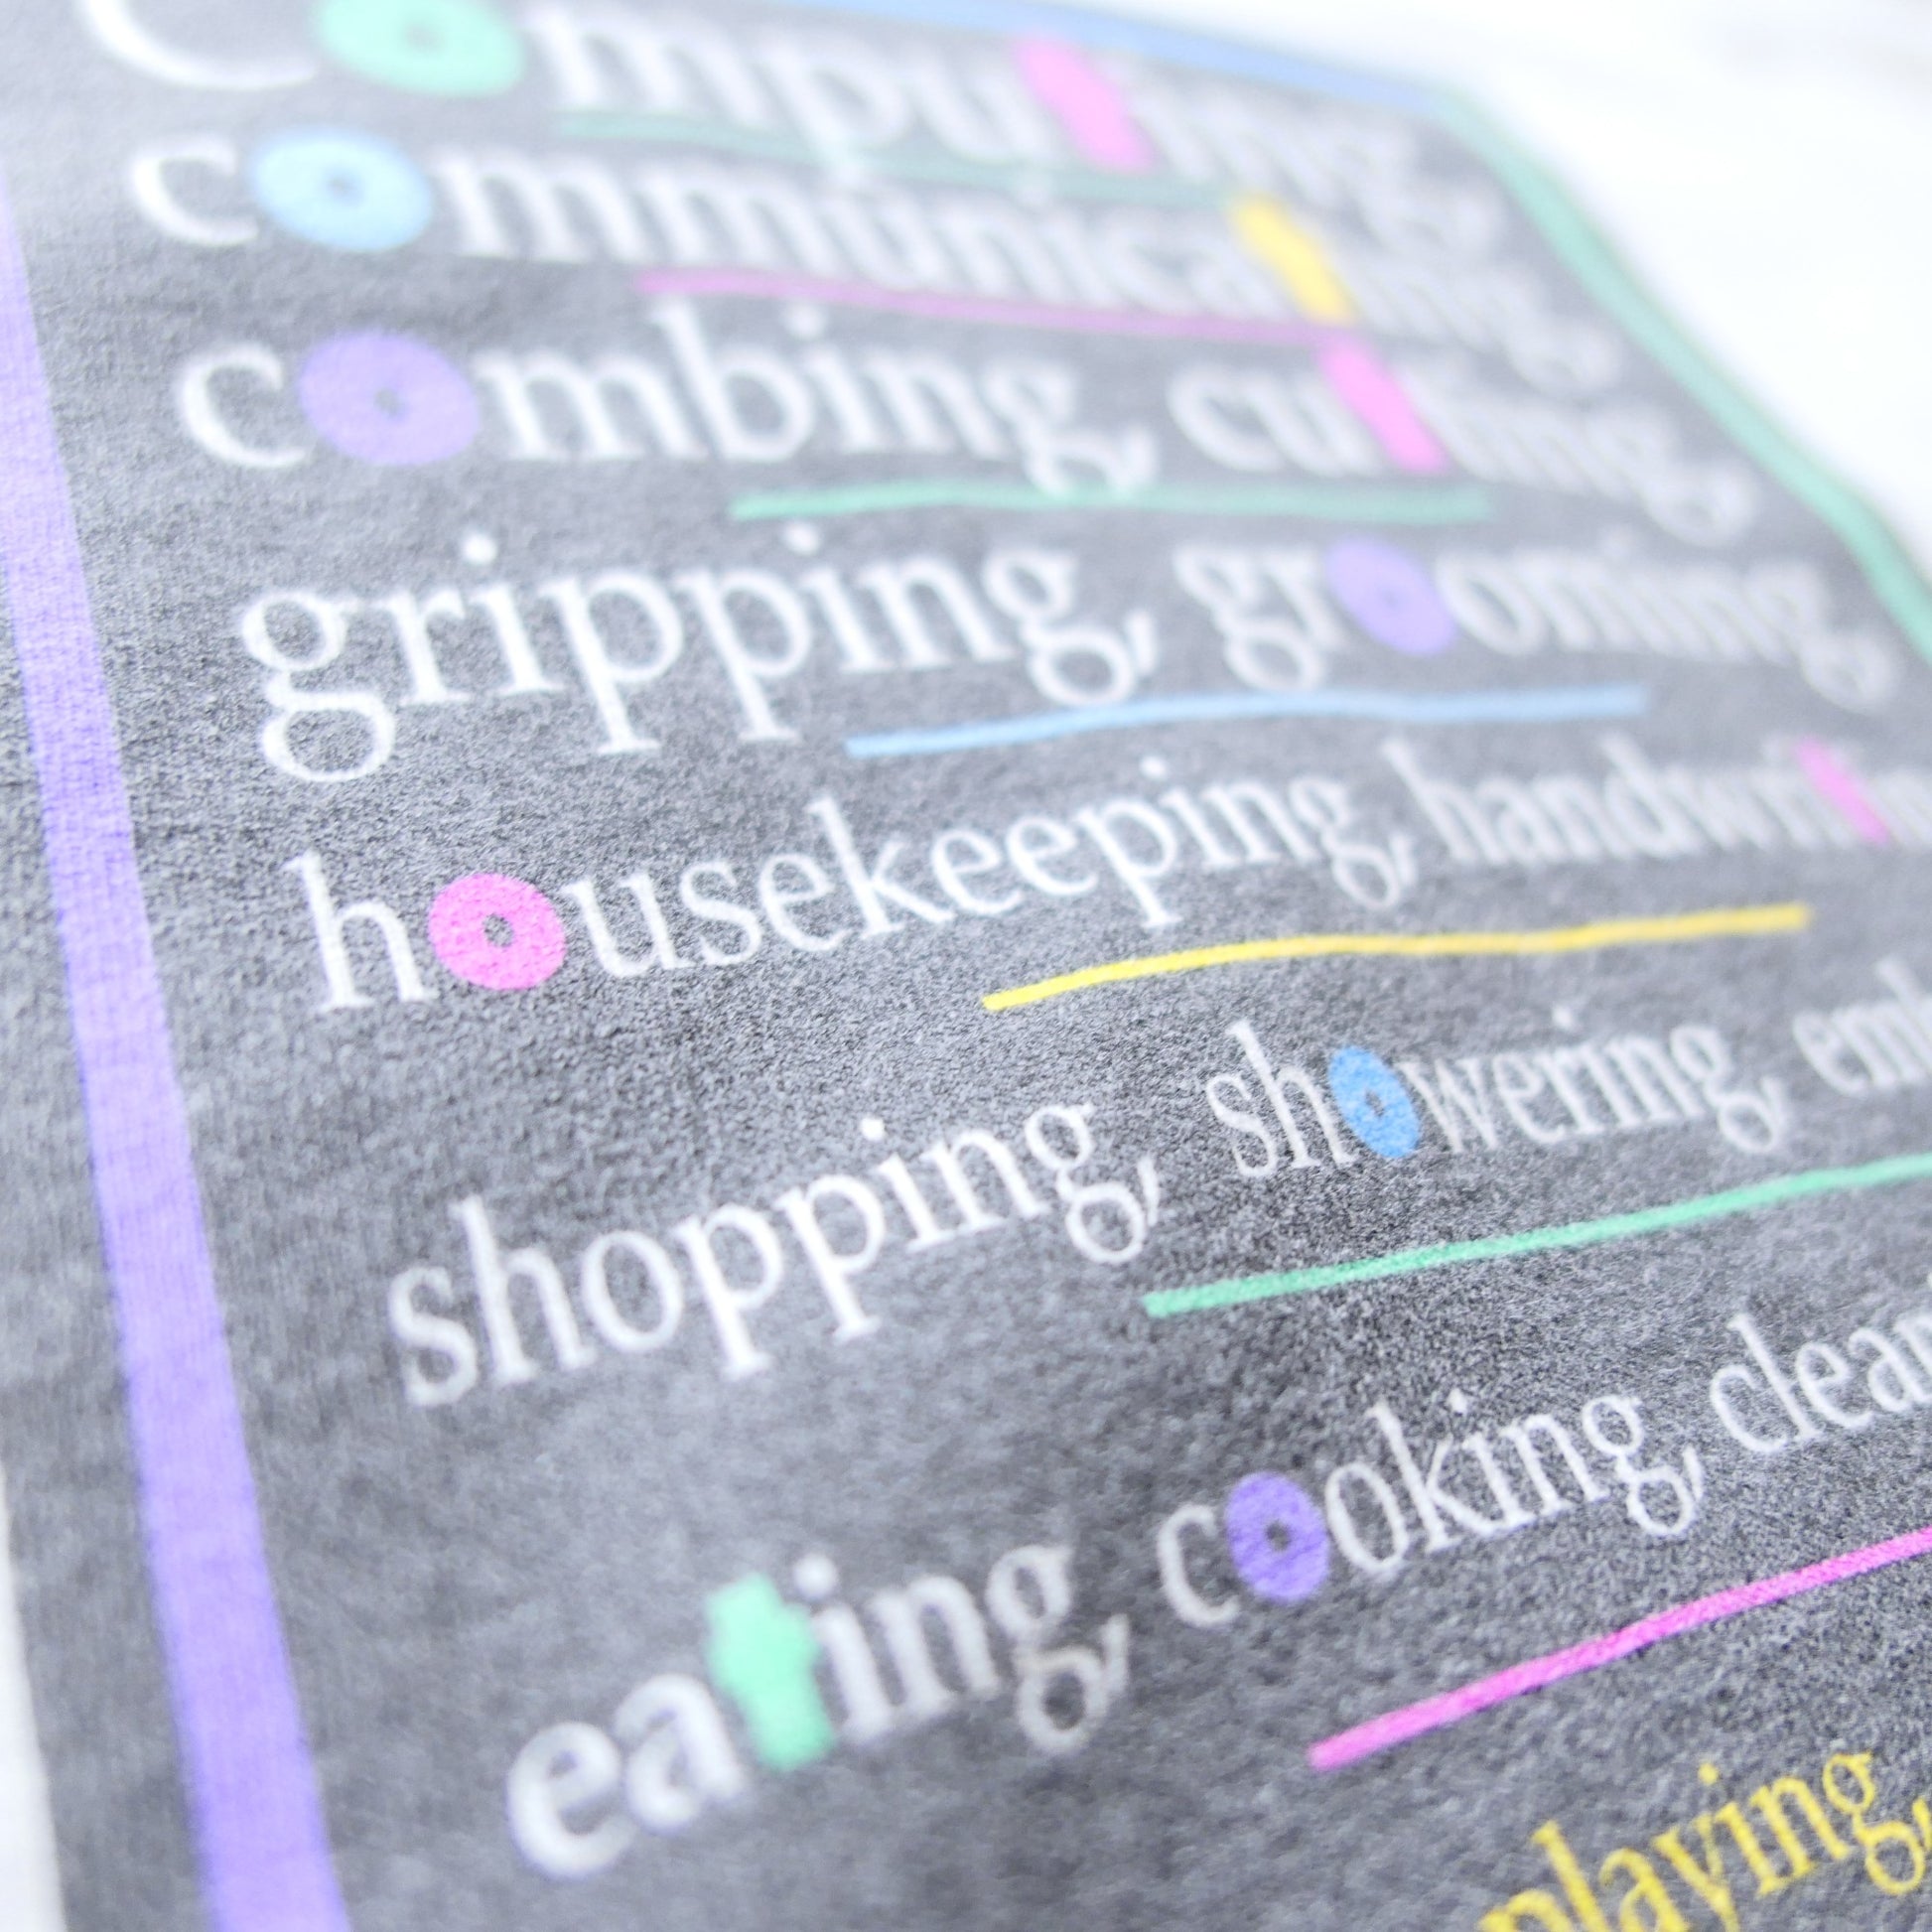 Computing,
communicating,
combing, cutting,
gripping, grooming,
housekeeping, handwriti
shopping, showering, emb
eating, cooking, clean
playing,